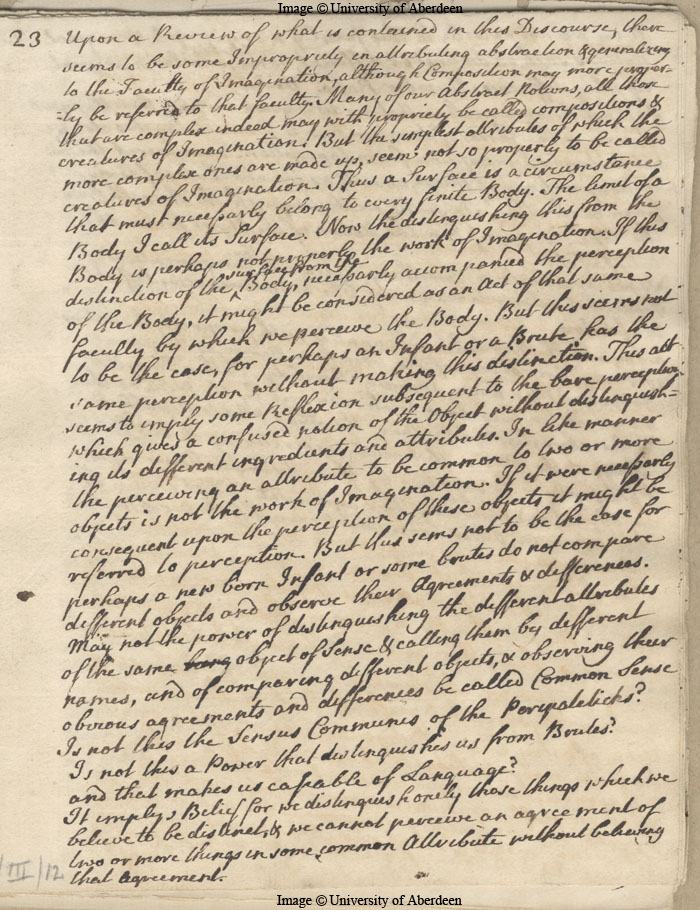 Image © University of Aberdeen
23
Upon a Review of what is contained in this Discourse, there
seems to be some Impropriety in attributing abstraction & generalizing
to the Faculty of Imagination, although Composition may more proper-
-ly be referred to that faculty. Many of our Abstract Notions, all those
that are complex indeed may with propriety be called compositions &
creatures of Imagination. But the simplest attributes of which the
more complex ones are made up, seem not so properly to be called
creatures of Imagination. Thus a Surface is a circumstance
that must necessarly belong to every finite Body. The limit of a
Body I call its Surface. Now the distinguishing this from the
Body is perhaps not properly the work of Imagination. If this
distinction of the surface from the Body, necessarly accompanied the perception
of the Body, it might be considered as an Act of that same
faculty by which we perceive the Body. But this seems not
to be the case, for perhaps an Infant or a Brute has the
same perception without making this distinction. This act
seems to imply some Reflexion subsequent to the bare perception
which gives a confused notion of the Object without distinguish-
ing its different ingredients and attributes. In like manner
the perceiving an attribute to be common to two or more
objects is not the work of Imagination. If it were necessarly
consequent upon the perception of these objects it might be
referred to perception. But this sems not to be the case for
perhaps a new born Infant or some brutes do not compare
different objects and observe their Agreements & differences.
May not the power of distinguishing the different attributes
of the same object of Sense & calling them by different
names, and of comparing different objects, & observing their
obvious agreements and differences be called Common Sense
Is not this the Sensus Communis of the Peripateticks?
Is not this a Power that distinguishes us from Brutes?
and that makes us capable of Language?
It implys Belief for we distinguish onely those things which we
believe to be distinct, & we cannot perceive an agreement of
two or more things in some common Attribute without believing
that agreement.
/III/12
Image © University of Aberdeen